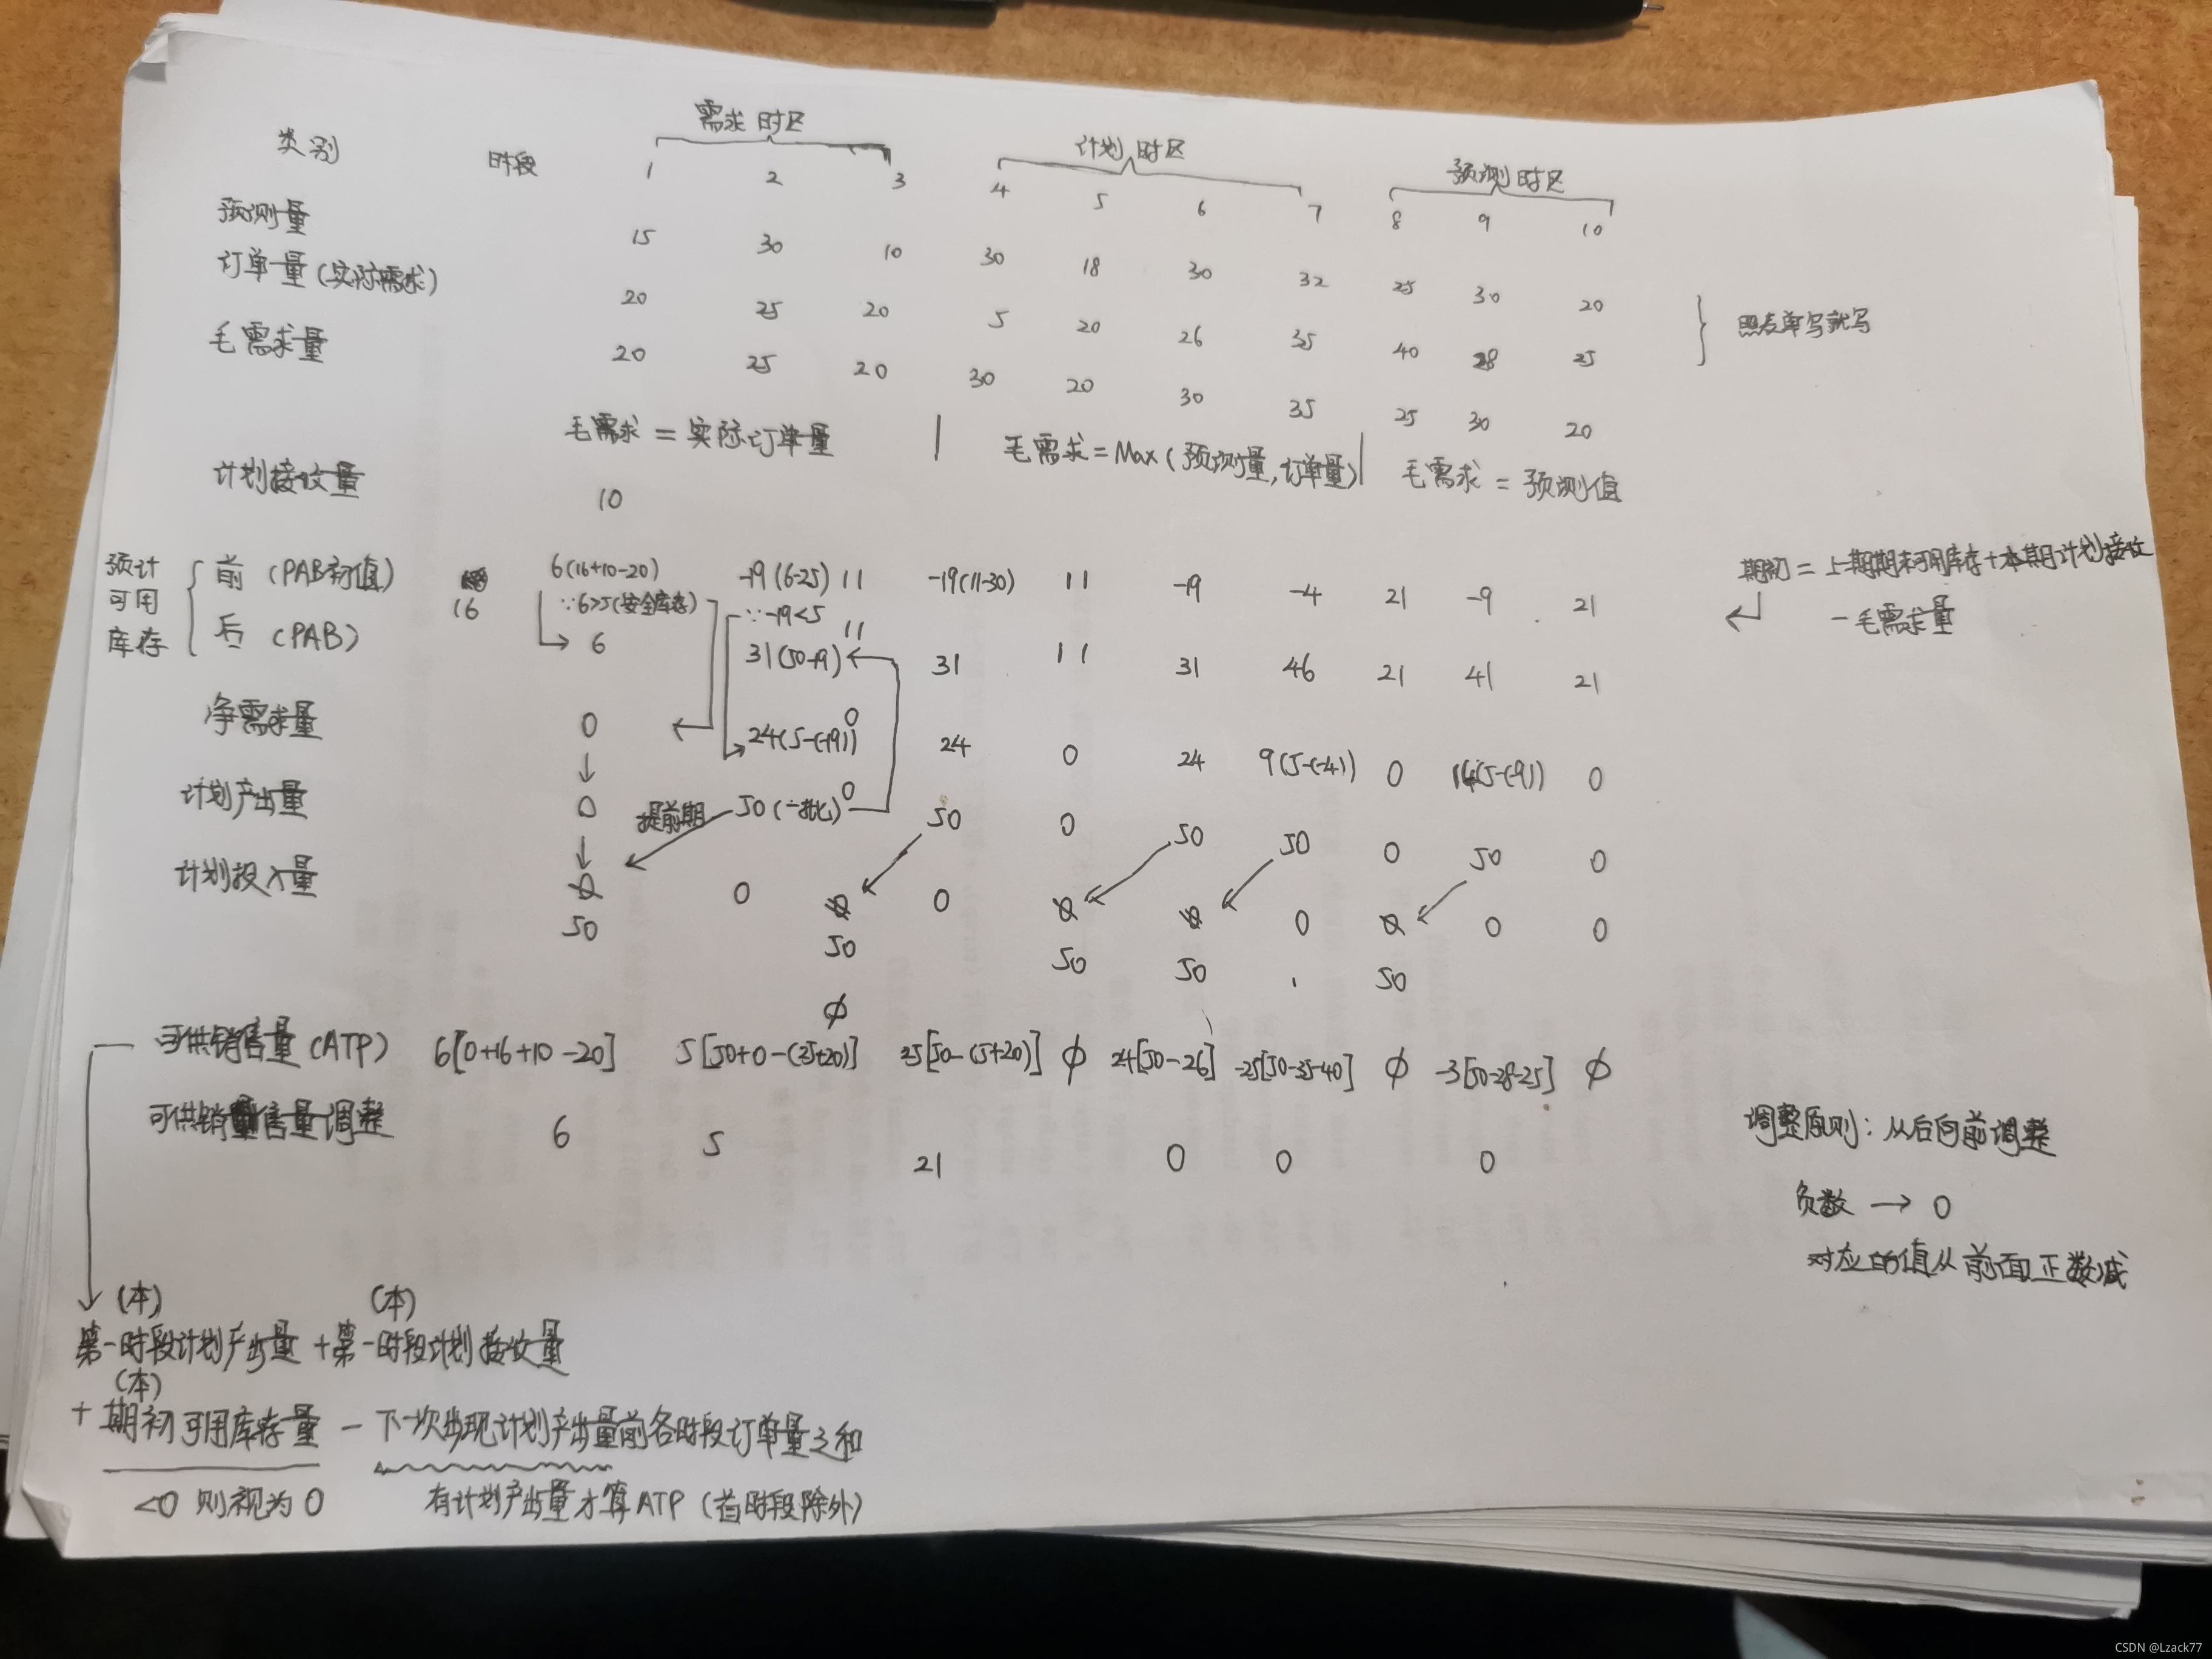 需求时区 计划时区 预测时区
类别 时段 1 2 3 4 5 6 7 8 9 10
预测量 15 30 10 30 18 30 32 25 30 20
订单量(实际需求) 20 25 20 5 20 26 35 40 28 25
照表单写就写
毛需求量 20 25 20 30 20 30 35 25 30 20
毛需求 = 实际订单量 | 毛需求 = Max(预测量,订单量) | 毛需求 = 预测值
计划接收量 10
预计可用库存
前 (PAB初值) 16 6(16+10-20) -19(6-25) 11 -19(11-30) 11 -19 -4 21 -9 21
∵6>5(安全库存) ∵-19<5
后 (PAB) 6 31(50-19) 11 31 11 31 46 21 41 21
期初 = 上期期末可用库存+本期计划接收
-毛需求量
净需求量 0 24(5-(-19)) 0 24 0 24 9(5-(-4)) 0 14(5-(-9)) 0
计划产出量 0 50(一批) 0 50 0 50 50 0 50 0
提前期
计划投入量 0 0 0 0 0 0 0 0 0 0
50 50 50 50 50
可供销售量(ATP) 6[0+16+10-20] 5[50+0-(25+20)] φ 25[50-(5+20)] φ 24[50-26] -25[50-35-40] φ -3[50-28-25] φ
可供销售量调整 6 5 21 0 0 0
调整原则:从后向前调整
负数 → 0
对应的值从前面正数减
(本) (本)
第一时段计划产出量+第一时段计划接收量
(本)
+期初可用库存量 - 下一次出现计划产出量前各时段订单量之和
<0 则视为0 有计划产出量才算ATP(首时段除外)
CSDN @Lzack77